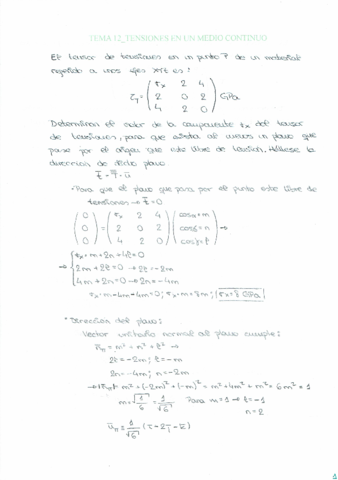 TEMA 12_TENSIONES EN UN MEDIO CONTINUO
El tensor de tensiones en un punto P de un material
referido a unos ejes XYZ es:
τ = ( σx 2 4 ; 2 0 2 ; 4 2 0 ) GPa
Determinar el valor de la componente σx del tensor
de tensiones, para que exista al menos un plano que
pase por el origen que esté libre de tensión. Hállese la
dirección de dicho plano
t̄ = T̄ · ū
• Para que el plano que pasa por el punto esté libre de
tensiones → t̄ = 0
( 0 ; 0 ; 0 ) = ( σx 2 4 ; 2 0 2 ; 4 2 0 )
σx · m + 2n + 4l = 0
2m + 2l = 0 → 2l = -2m
4m + 2n = 0 → 2n = -4m
σx · m - 4m - 4m = 0; σx · m = 8m; σx = 8 GPa
• Dirección del plano:
Vector unitario normal al plano cumple:
2l = -2m; l = -m
2n = -4m; n = -2m
m² + (-2m)² + (-m)² = m² + 4m² + m² = 6m² = 1
m = √(1/6) = 1/√6 Para m = 1 → l = -1